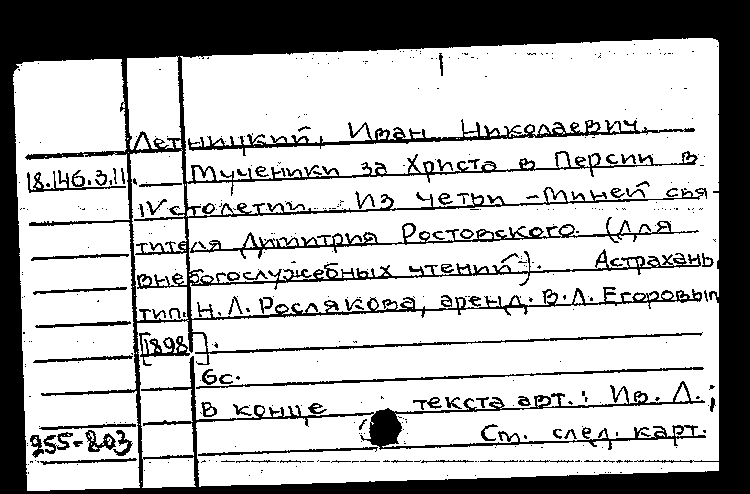 Летницкий, Иван Николаевич.
18.146.3.11. Мученики за Христа в Персии в
IV столетии. Из четьи-миней свя-
тителя Димитрия Ростовского. (Для
внебогослужебных чтений). Астрахань,
тип. Н.Л. Рослякова, аренд. В.Л. Егоровым
[1898].
6с.
В конце текста авт.: Ив. Л.;
255-803 См. след. карт.